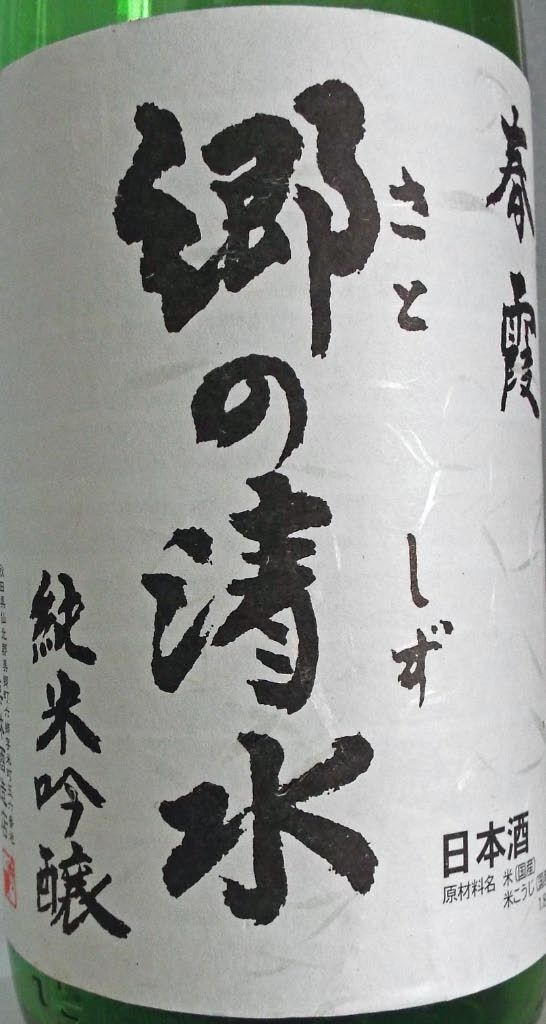 春霞
さと
しず
郷の清水
純米吟醸
日本酒
原材料名 米(国産)
米こうじ